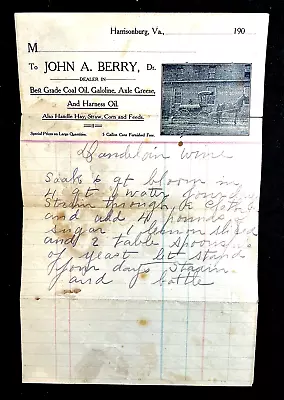 Harrisonburg, Va.,            190
M
To JOHN A. BERRY, Dr.
DEALER IN
Best Grade Coal Oil, Galoline, Axle Greese,
And Harness Oil.
Also Handle Hay, Straw, Corn and Feeds.
Special Prices on Large Quantities.   5 Gallon Cans Furnished Free.
Dandloin wine
Soak 6 qt bloom in
4 qt of water four days
Strain through a cloth
and add 4 pounds of
sugar 1 lemon sliced
and 2 table spoonsful
of yeast let stand
four days Strain
and bottle